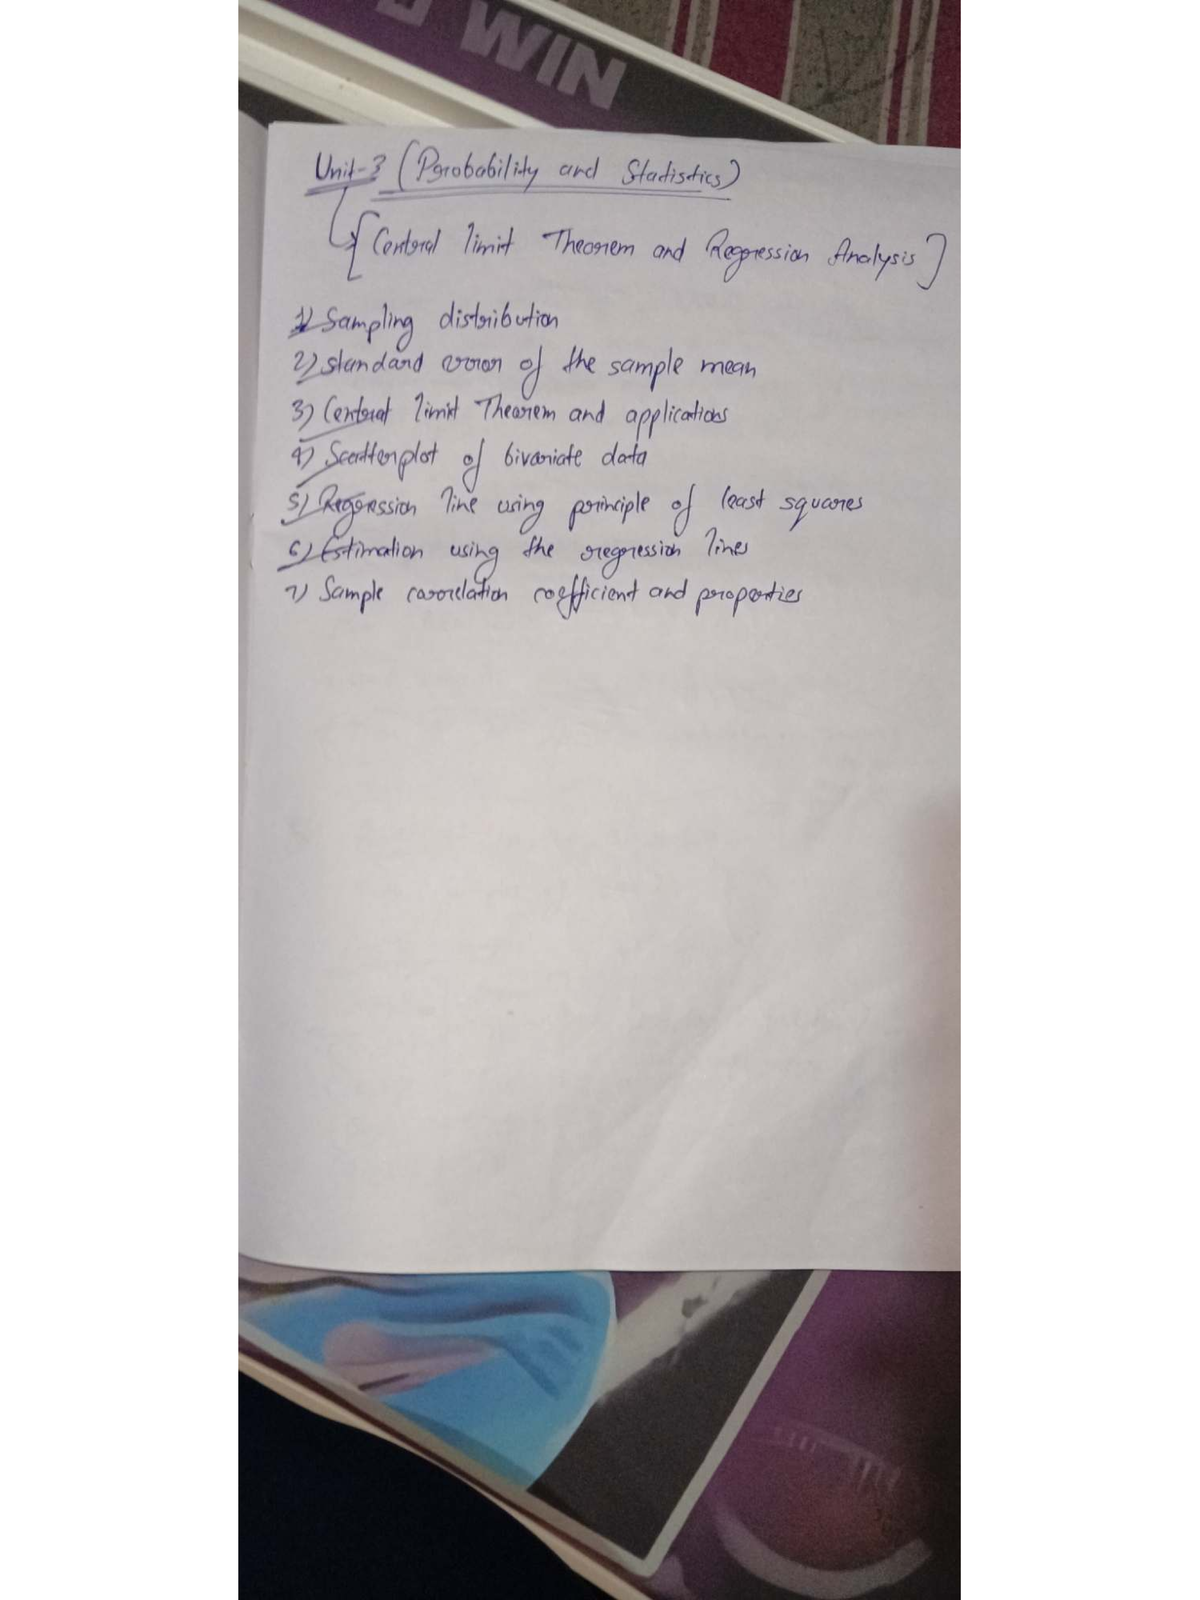 WIN
Unit-3 (Probability and Statistics)
[Central limit Theorem and Regression Analysis]
1) Sampling distribution
2) standard error of the sample mean
3) Central limit Theorem and applications
4) Scatterplot of bivariate data
5) Regression line using principle of least squares
6) Estimation using the regression lines
7) Sample correlation coefficient and properties